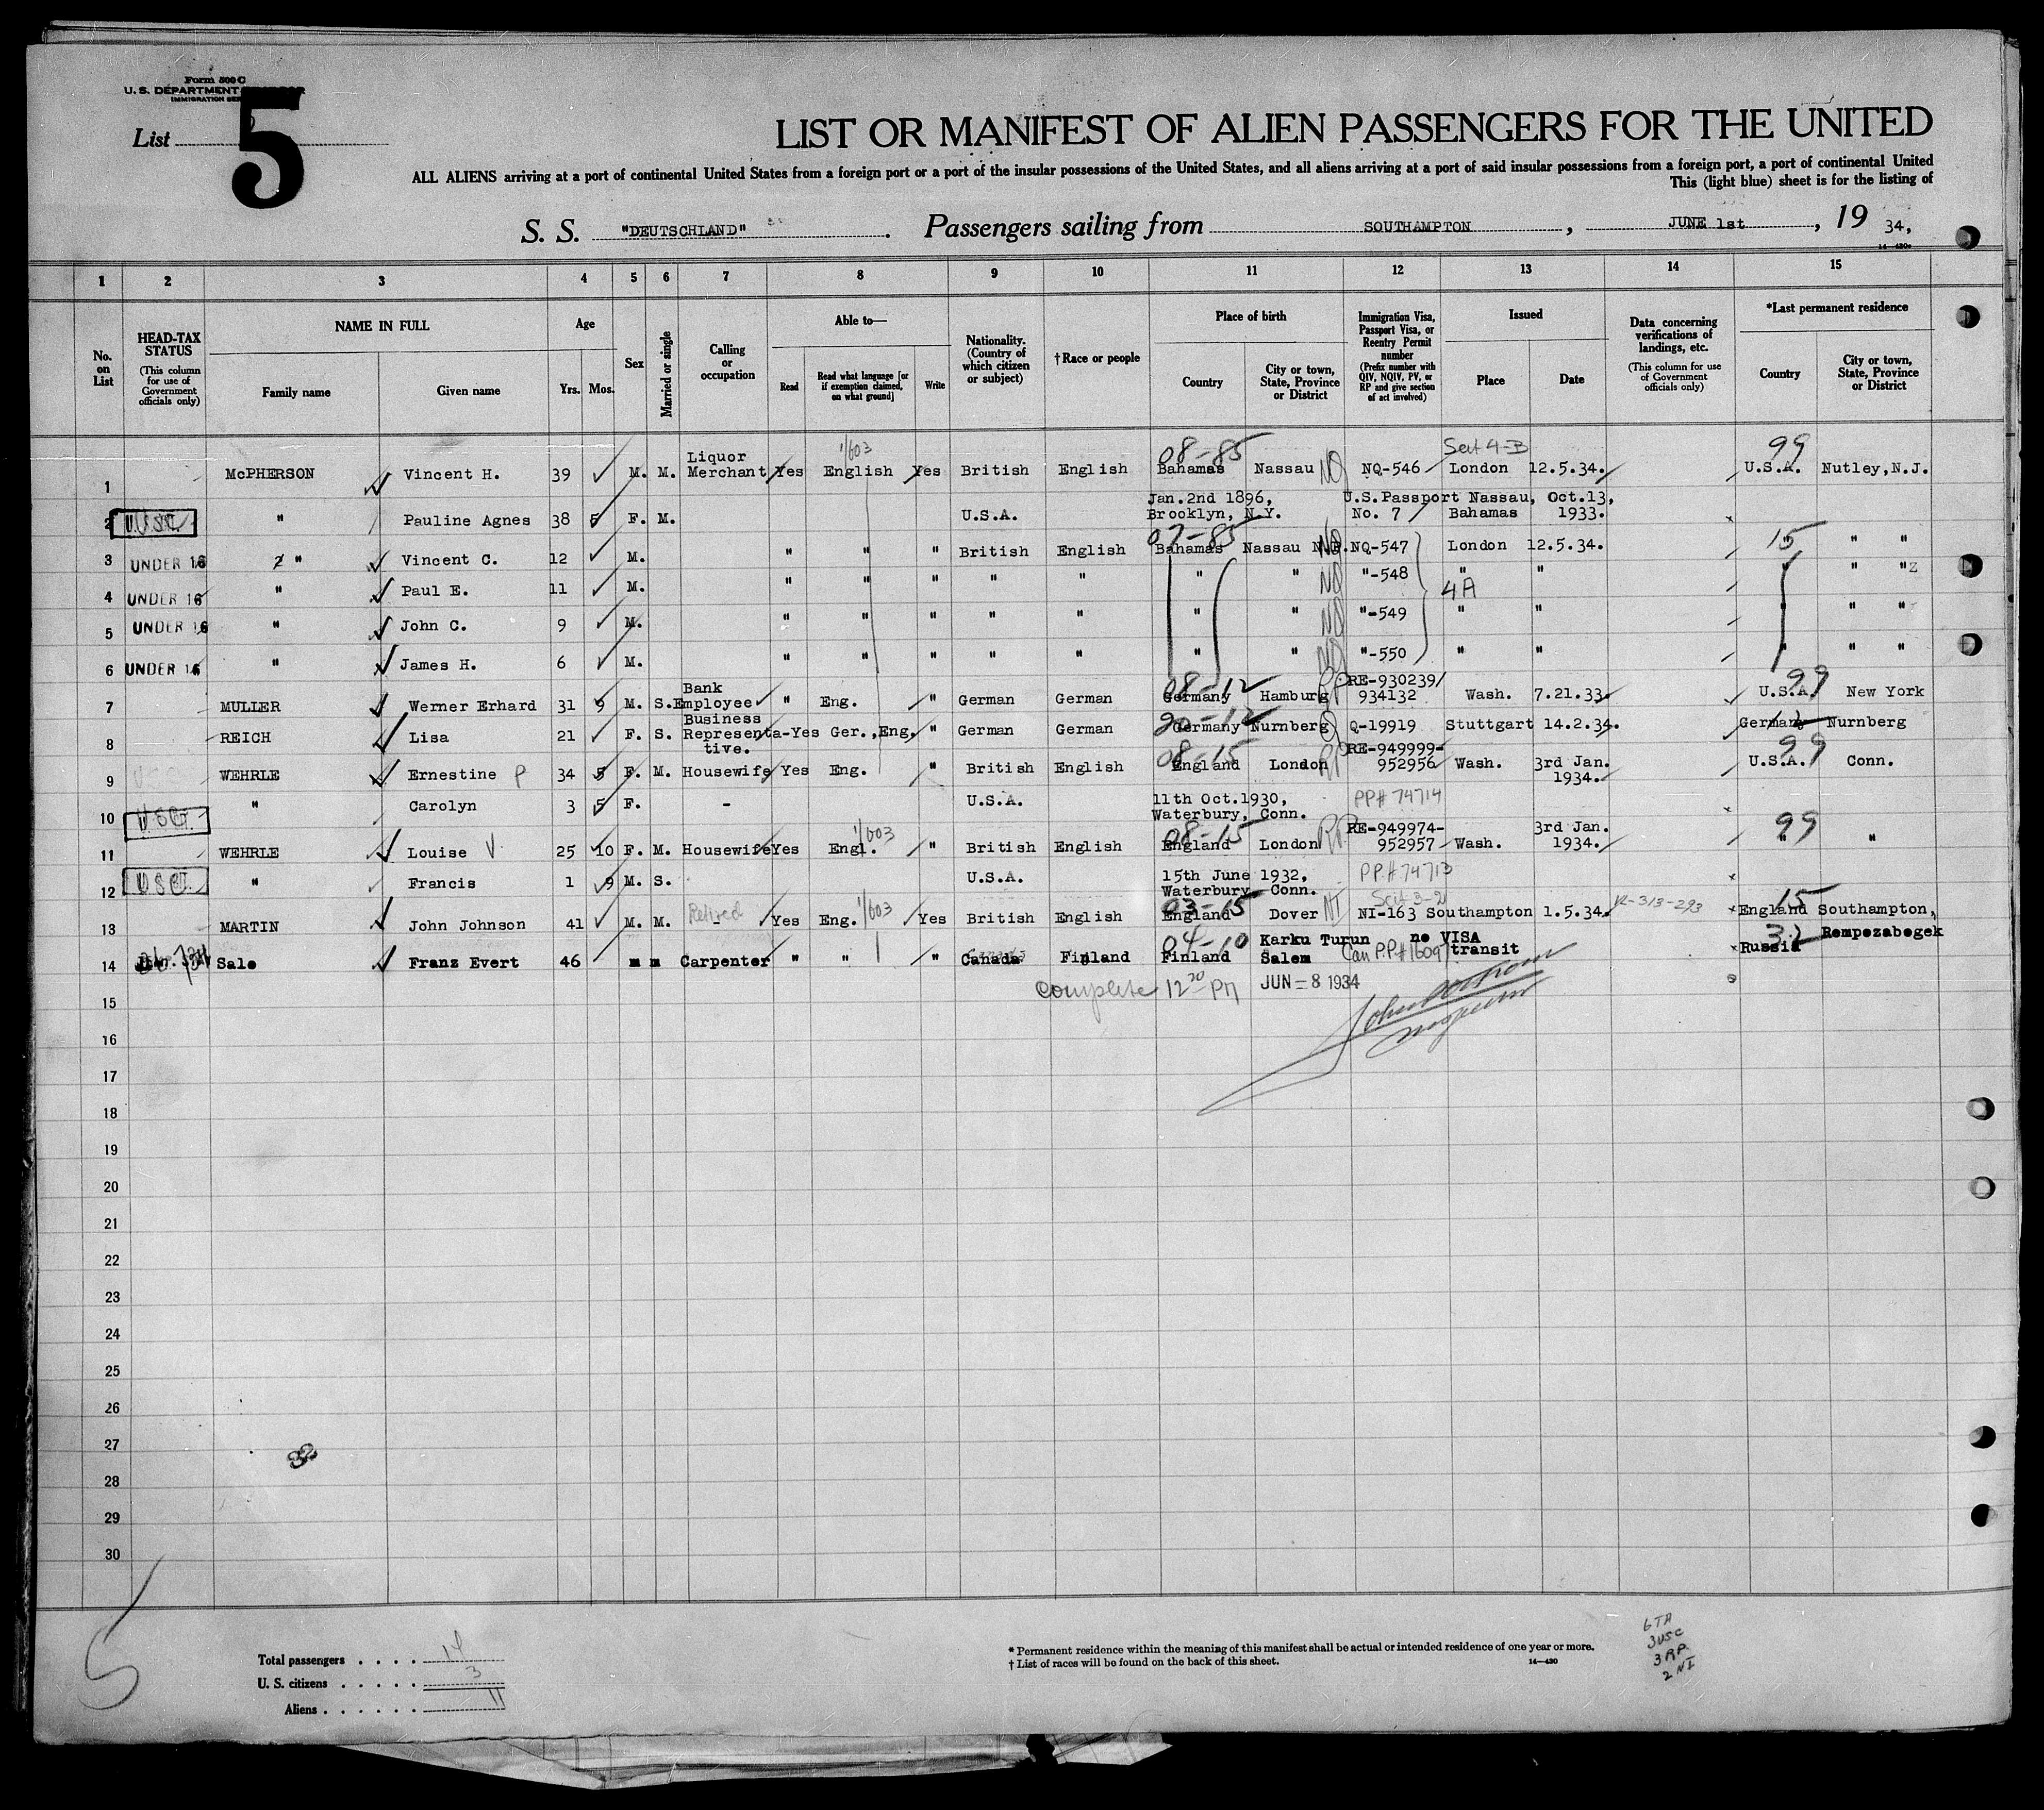 Form 500 C
U. S. DEPARTMENT
IMMIGRATION SER
List 5
LIST OR MANIFEST OF ALIEN PASSENGERS FOR THE UNITED
ALL ALIENS arriving at a port of continental United States from a foreign port or a port of the insular possessions of the United States, and all aliens arriving at a port of said insular possessions from a foreign port, a port of continental United
This (light blue) sheet is for the listing of
S. S. "DEUTSCHLAND". Passengers sailing from SOUTHAMPTON, JUNE 1st, 19 34,
1 2 3 4 5 6 7 8 9 10 11 12 13 14 15
No. on List
HEAD-TAX STATUS (This column for use of Government officials only)
NAME IN FULL Family name Given name
Age Yrs. Mos.
Sex
Married or single
Calling or occupation
Able to— Read Read what language [or if exemption claimed, on what ground] Write
Nationality. (Country of which citizen or subject)
†Race or people
Place of birth Country City or town, State, Province or District
Immigration Visa, Passport Visa, or Reentry Permit number (Prefix number with QIV, NQIV, PV, or RP and give section of act involved)
Issued Place Date
Data concerning verifications of landings, etc. (This column for use of Government officials only)
*Last permanent residence Country City or town, State, Province or District
1/603 08-85 Sect 4-B 99
1 McPHERSON Vincent H. 39 M. M. Liquor Merchant Yes English Yes British English Bahamas Nassau NQ NQ-546 London 12.5.34. U.S.A. Nutley, N.J.
2 U.S.C. " Pauline Agnes 38 5 F. M. U.S.A. Jan. 2nd 1896, Brooklyn, N.Y. U.S. Passport No. 7 Nassau, Bahamas Oct. 13, 1933.
07-85 15
3 UNDER 16 " Vincent C. 12 M. " " " British English Bahamas Nassau NQ-547 London 12.5.34. " " "
4 UNDER 16 " Paul E. 11 M. " " " " " " " NQ "-548 " " " " "
4A
5 UNDER 16 " John C. 9 M. " " " " " " " NQ "-549 " " " " "
6 UNDER 16 " James H. 6 M. " " " " " " " NQ "-550 " " " " "
08-12 99
7 MULLER Werner Erhard 31 9 M. S. Bank Employee " Eng. " German German Germany Hamburg RP RE-930239/ 934132 Wash. 7.21.33. U.S.A. New York
20-12 12
8 REICH Lisa 21 F. S. Business Representa-tive. Yes Ger., Eng. " German German Germany Nurnberg Q Q-19919 Stuttgart 14.2.34. Germany Nurnberg
08-15 99
9 WEHRLE Ernestine P 34 5 F. M. Housewife Yes Eng. " British English England London RP RE-949999- 952956 Wash. 3rd Jan. 1934. U.S.A. Conn.
10 USC. " Carolyn 3 5 F. - U.S.A. 11th Oct. 1930, Waterbury, Conn. PP# 74714
1/603 08-15 99
11 WEHRLE Louise V. 25 10 F. M. Housewife Yes Engl. " British English England London RP RE-949974- 952957 Wash. 3rd Jan. 1934. " "
12 USC. " Francis 1 9 M. S. U.S.A. 15th June 1932, Waterbury Conn. PP# 74713
Retired 1/603 03-15 Sect 3-2 15
13 MARTIN John Johnson 41 M. M. - Yes Eng. Yes British English England Dover NI NI-163 Southampton 1.5.34. R-313-293 England Southampton,
04-10 32
14 Salo Franz Evert 46 m m Carpenter " " " Canada Finland Finland Karku Turun Salem no VISA transit Can P.P.# 1609 Russia Rempozabogek
complete 12 30 PM JUN - 8 1934
15
16
17
18
19
20
21
22
23
24
25
26
27
28
29
30
5
Total passengers . . . . 14
U. S. citizens . . . . . 3
Aliens . . . . . . 11
* Permanent residence within the meaning of this manifest shall be actual or intended residence of one year or more.
† List of races will be found on the back of this sheet.
14—430
6 TA
3 USC
3 RP.
2 NI